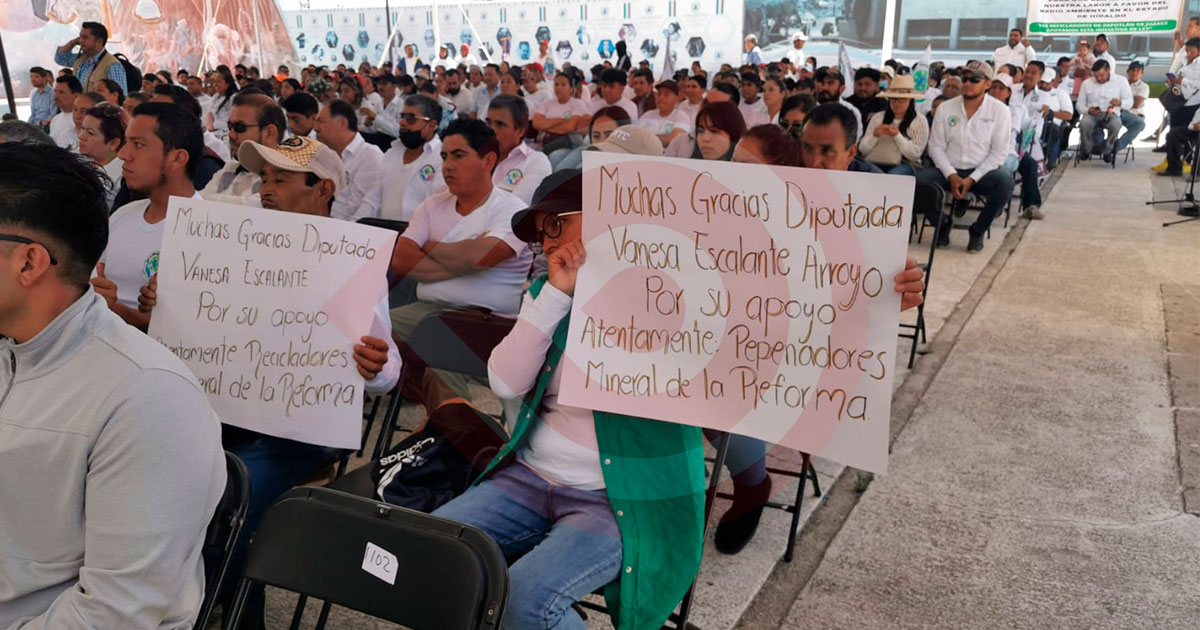 NUESTRA LABOR A FAVOR DEL
MEDIO AMBIENTE EN EL ESTADO
DE HIDALGO
Muchas Gracias Diputada
Vanesa Escalante
Por su apoyo
Atentamente Recicladores
Mineral de la Reforma
Muchas Gracias Diputada
Vanesa Escalante Arroyo
Por su apoyo
Atentamente: Pepenadores
Mineral de la Reforma.
adidas
1102